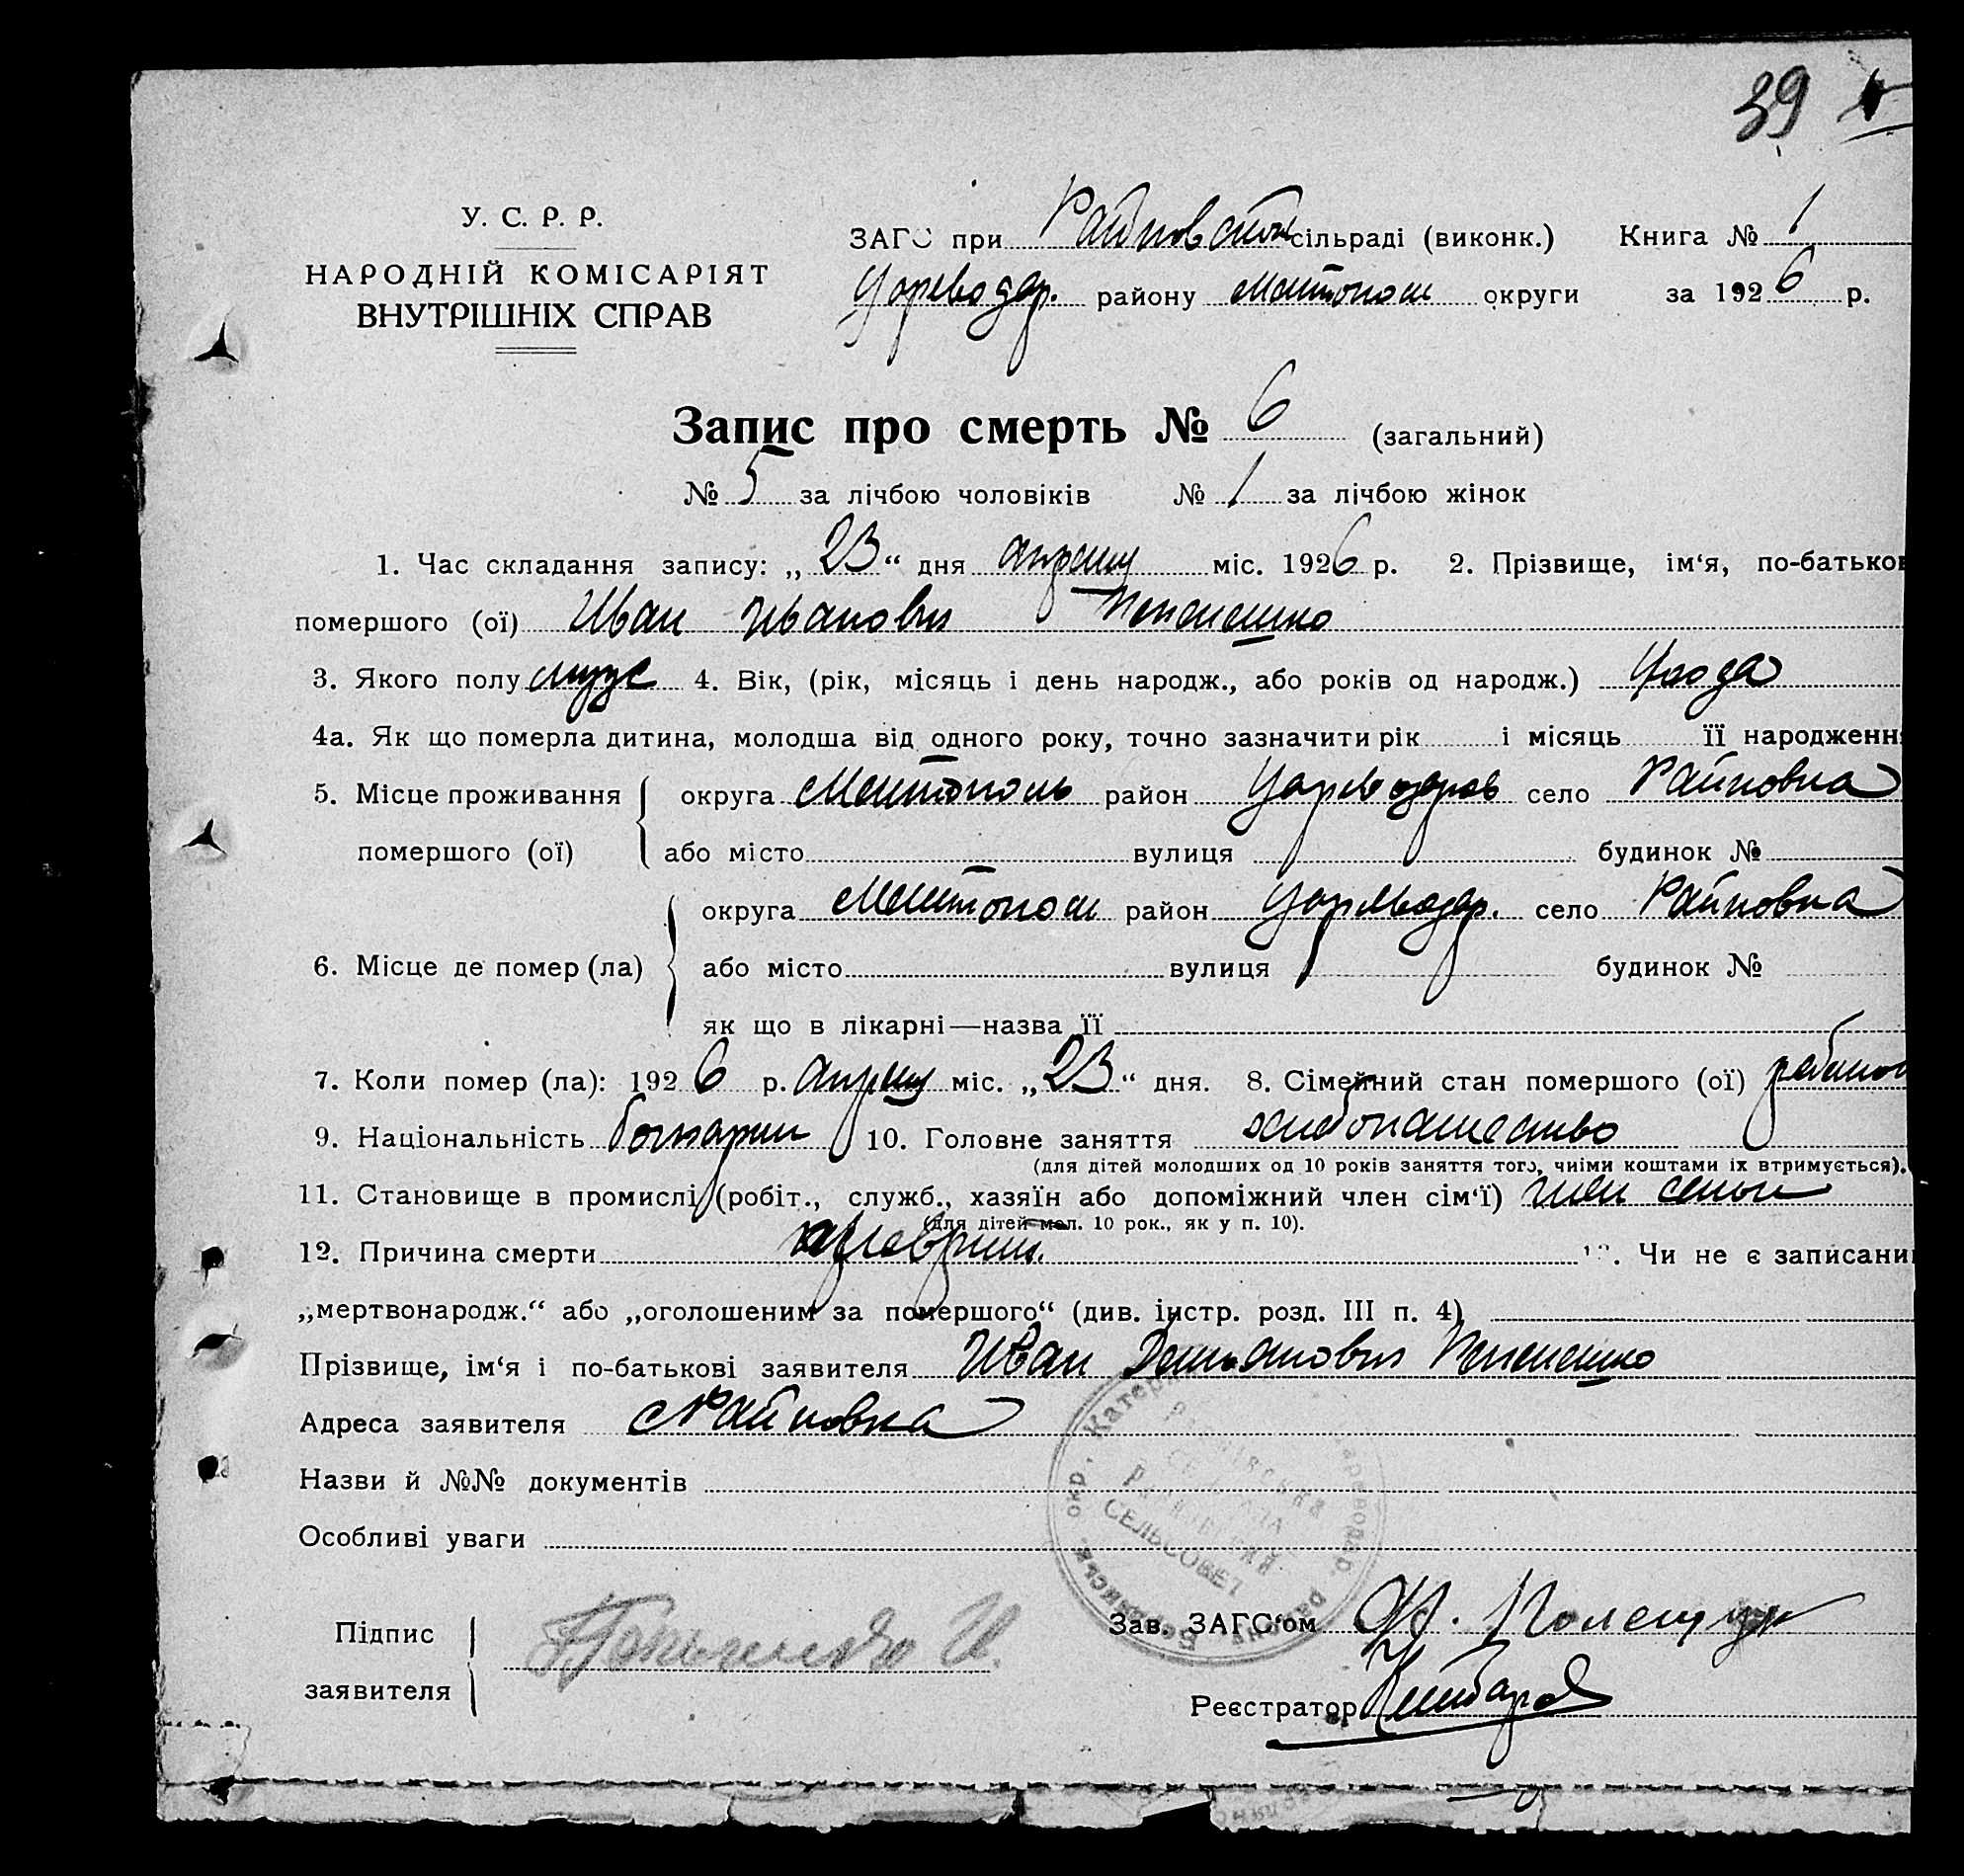 39
У. С. Р. Р.
НАРОДНІЙ КОМІСАРІЯТ
ВНУТРІШНІХ СПРАВ
ЗАГС при Райновской сільраді (виконк.) Книга № 1
Цареводар. району Мелитопол округи за 1926 р.
Запис про смерть № 6 (загальний)
№ 5 за лічбою чоловіків № 1 за лічбою жінок
1. Час складання запису: „23“ дня апреля міс. 1926 р. 2. Прізвище, ім‘я, по-батькові
помершого (ої) Иван Иванович
3. Якого полу муж 4. Вік, (рік, місяць і день народж., або років од народж.) года
4а. Як що померла дитина, молодша від одного року, точно зазначити рік і місяць її народження
5. Місце проживання округа Мелитополь район Цареводаров село Райновка
помершого (ої) або місто вулиця будинок №
округа Мелитопол район Цареводар. село Райновка
6. Місце де помер (ла) або місто вулиця будинок №
як що в лікарні—назва її
7. Коли помер (ла): 1926 р. апреля міс. „23“ дня. 8. Сімейний стан помершого (ої)
9. Національність болгарин 10. Головне заняття хлебопашество
(для дітей молодших од 10 років заняття того, чиїми коштами їх втримується).
11. Становище в промислі (робіт., служб., хазяїн або допоміжний член сім‘ї) член семьи
(для дітей мол. 10 рок., як у п. 10).
12. Причина смерти 13. Чи не є записаний
„мертвонародж.“ або „оголошеним за помершого“ (див. інстр. розд. III п. 4)
Прізвище, ім‘я і по-батькові заявителя Иван
Адреса заявителя с Райновка
Назви й №№ документів
Особливі уваги
СЕЛЬСОВЕТ
Підпис
заявителя
Зав. ЗАГС‘ом
Реєстратор